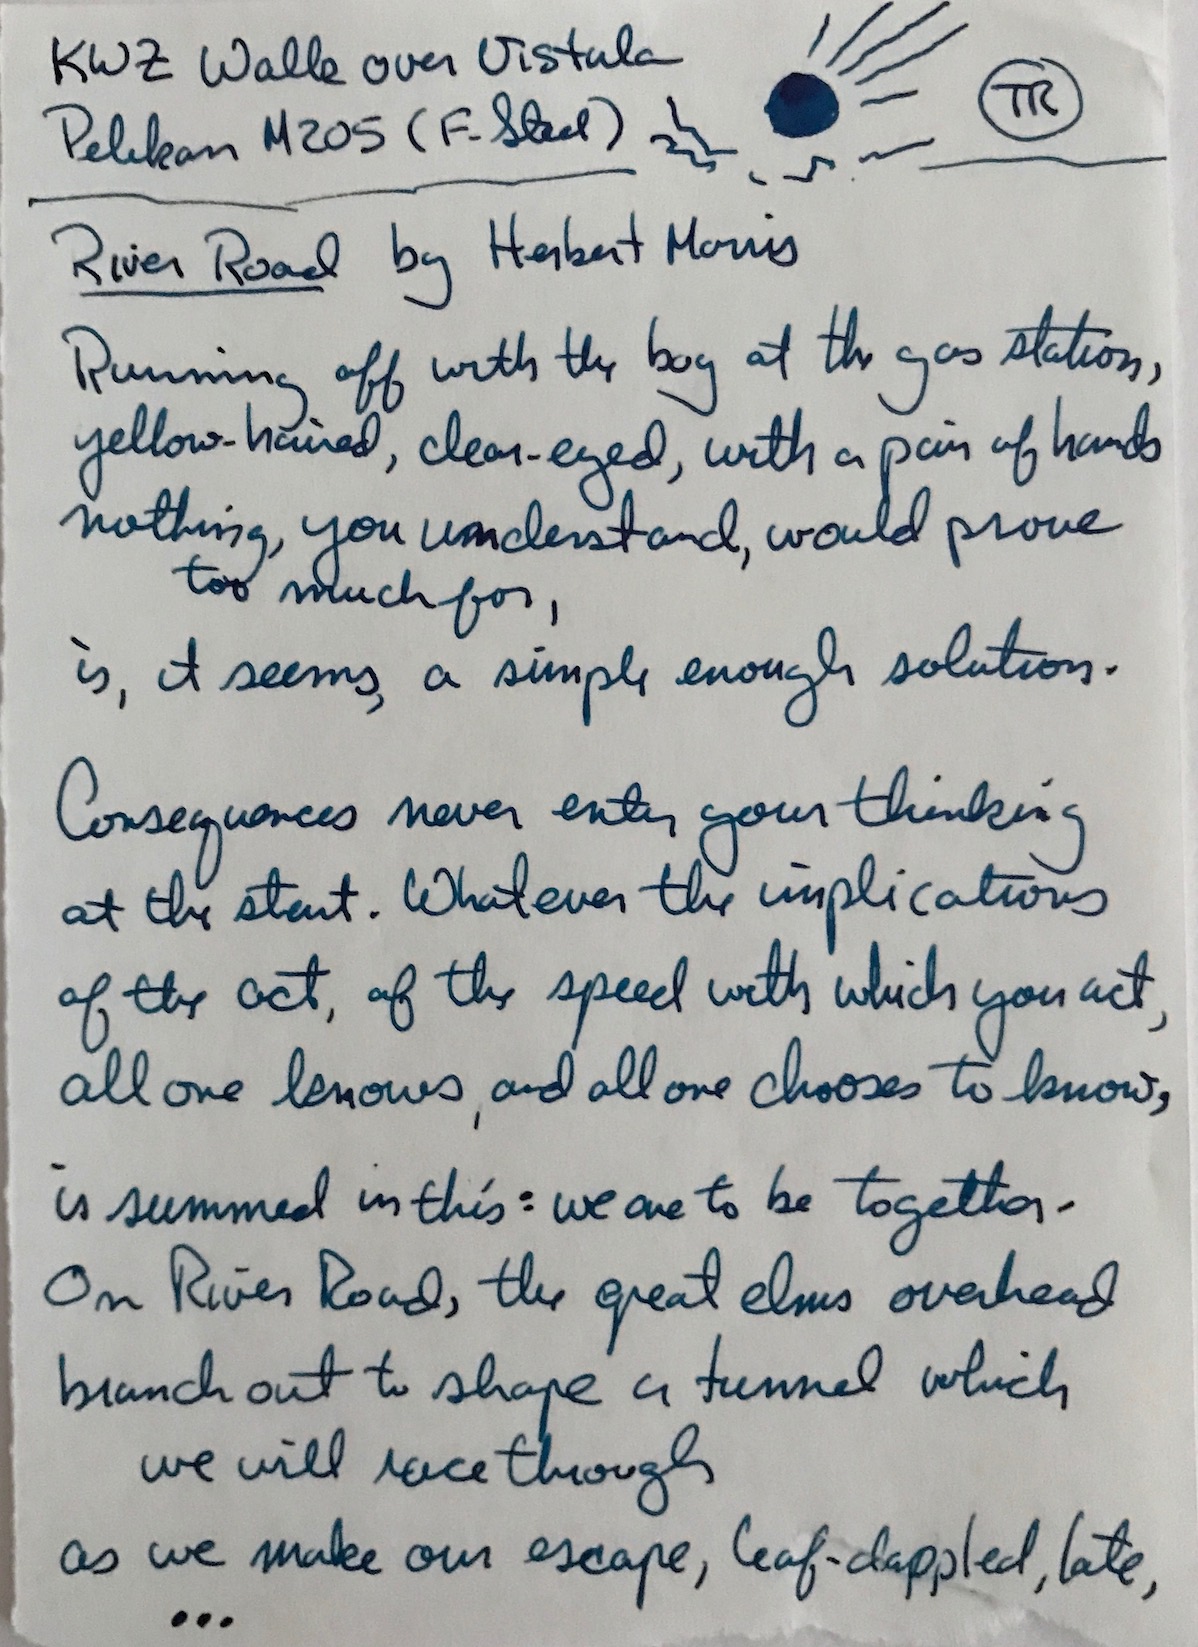 KWZ Walk over Vistula
Pelikan M205 (F-Steel)
TR
River Road by Herbert Morris
Running off with the boy at the gas station,
yellow-haired, clear-eyed, with a pair of hands
nothing, you understand, would prove
too much for,
is, it seems, a simple enough solution.
Consequences never enter your thinking
at the start. Whatever the implications
of the act, of the speed with which you act,
all one knows, and all one chooses to know,
is summed in this: we are to be together.
On River Road, the great elms overhead
branch out to shape a tunnel which
we will race through
as we make our escape, leaf-dappled, late,
...